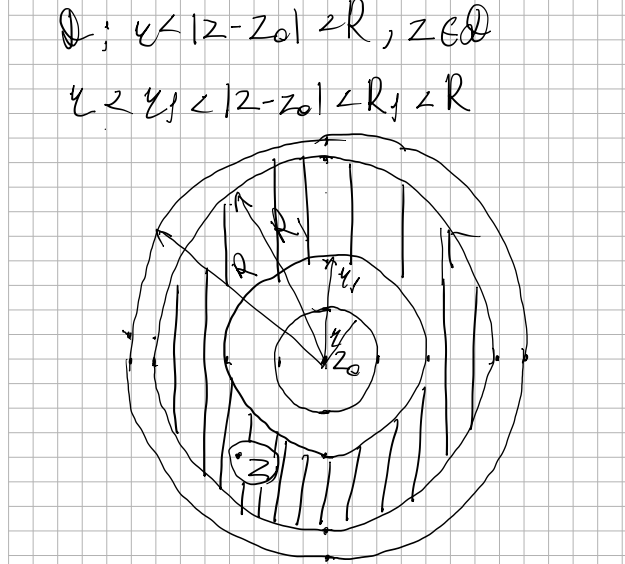 D: r < |z - z₀| < R, z ∈ D
r < r₁ < |z - z₀| < R₁ < R
R₁
R
r₁
r
z₀
z